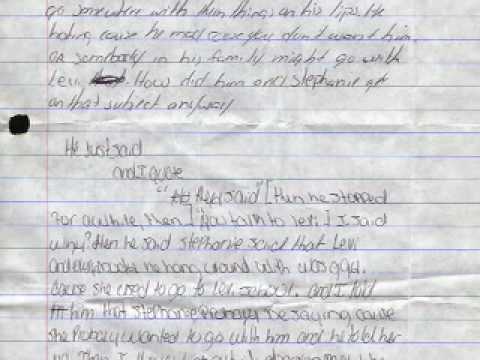 go somewhere with them things on his lips. He
hating cause he mad cause you don't want him.
or somebody in his family might go with
Levi, How did him and Stephanie get
on that subject anyway
He just said
and I quote
" they said" [then he stopped
for awhile, then] "you talk to Levi] I said
why? then he said Stephanie said that Levi
and he hang around with was
cause she used to go to Levi school. and I told
him that Stephanie Probaly be saying cause
she Probaly wanted to go with him and he told her
no. Then I